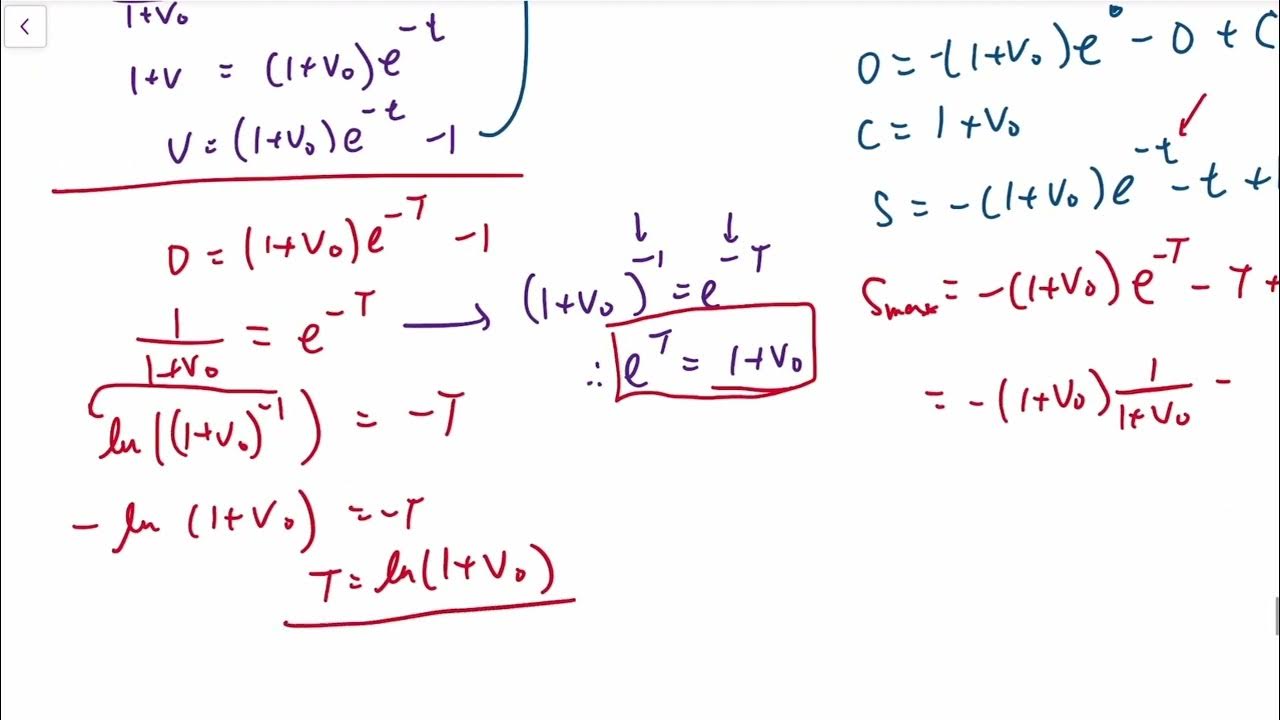 1+V₀
1+V = (1+V₀)e^{-t}
V = (1+V₀)e^{-t} -1
0 = (1+V₀)e^{-T} -1
1/(1+V₀) = e^{-T} → (1+V₀)^{-1} = e^{-T}
∴ e^T = 1+V₀
ln((1+V₀)^{-1}) = -T
- ln (1+V₀) = -T
T = ln(1+V₀)
0 = -(1+V₀)e^0 - 0 + C
C = 1+V₀
S = -(1+V₀)e^{-t} - t +
S_max = -(1+V₀)e^{-T} - T +
= -(1+V₀) 1/(1+V₀) -